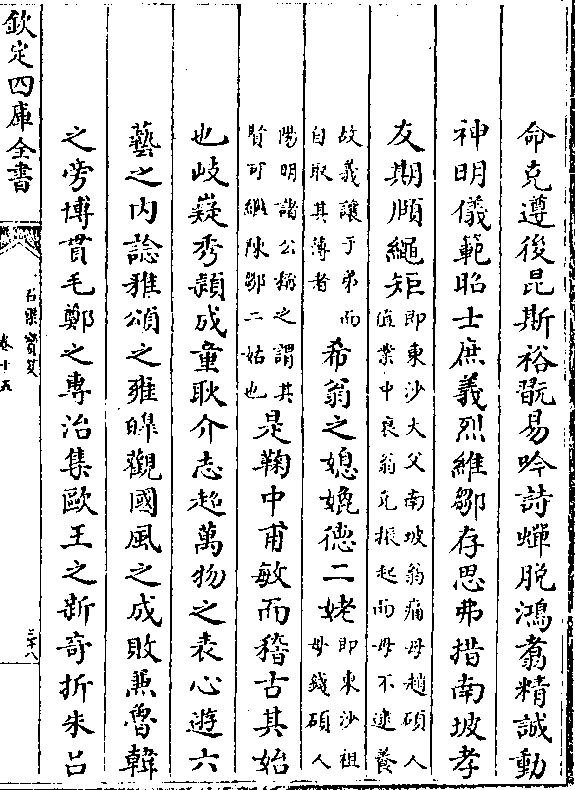 命克遵後昆斯裕翫易吟詩蟬脫鴻翥精誠動
神明儀範昭士庶義烈維鄒存思弗措南坡孝
友期頤繩矩
即東沙大父南坡翁痛母趙碩人
值業中衰翁克振起而母不逮養
故義讓于弟而
自取其薄者
希翁之媳媲德二姥
即東沙祖
母錢碩人
陽明諸公稱之謂其
賢可繼陳鄒二姑也
是鞠中甫敏而稽古其始
也岐嶷秀頴成童耿介志超萬物之表心遊六
藝之內諗雅頌之雍皥觀國風之成敗兼魯韓
之旁博貫毛鄭之專治集歐王之新奇折朱吕
欽定四庫全書
石渠寳笈
卷十五
三十八